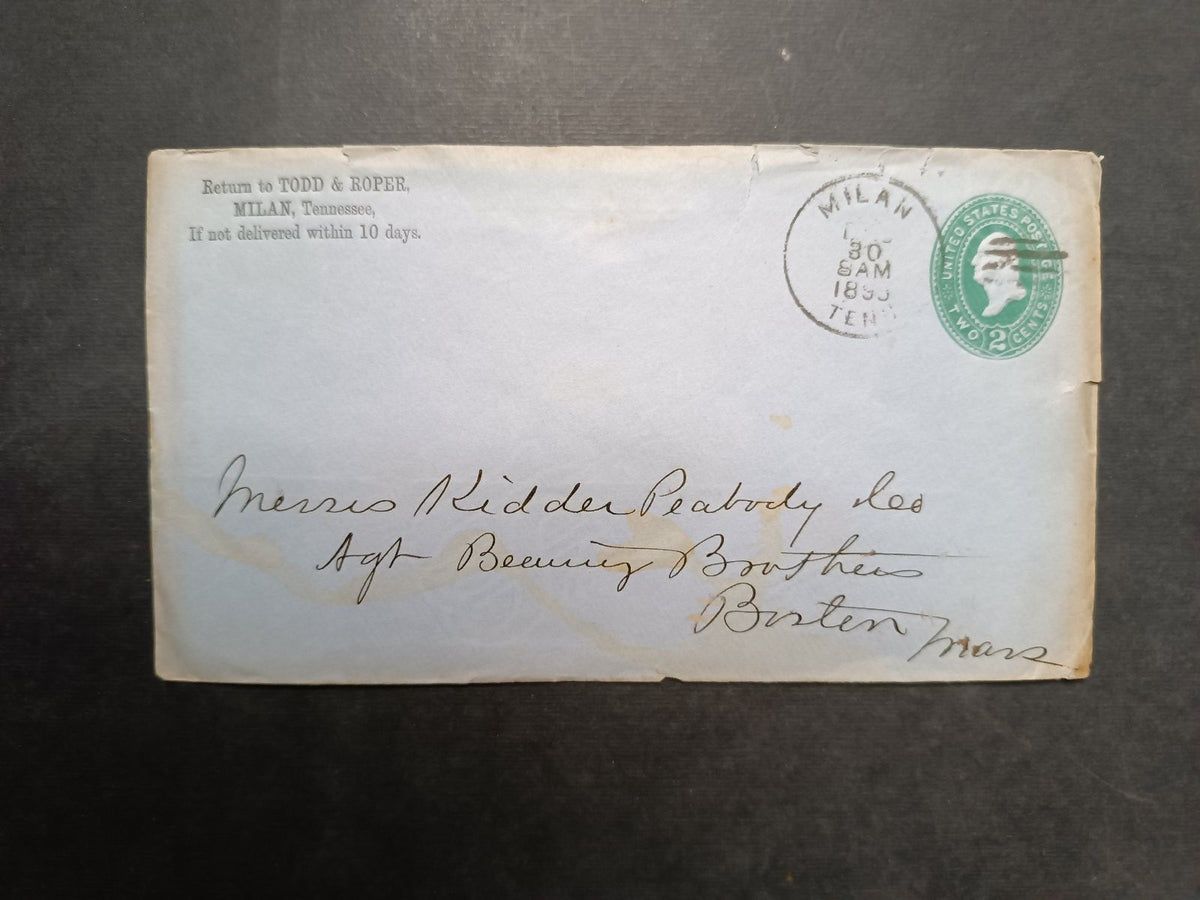 Return to TODD & ROPER,
MILAN, Tennessee,
If not delivered within 10 days.
MILAN
30
8AM
TENN
UNITED STATES POSTAGE
TWO 2 CENTS
Messrs Kidder Peabody &Co
Agt Bearing Brothers
Boston Mass